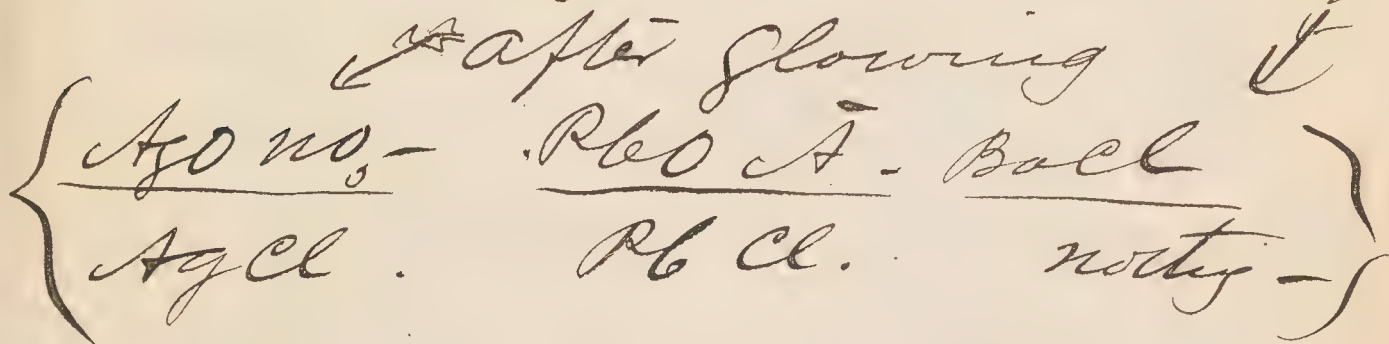 after glowing
AgO NO5 - PbO Ā - BaCl
AgCl . Pb Cl . nothg -